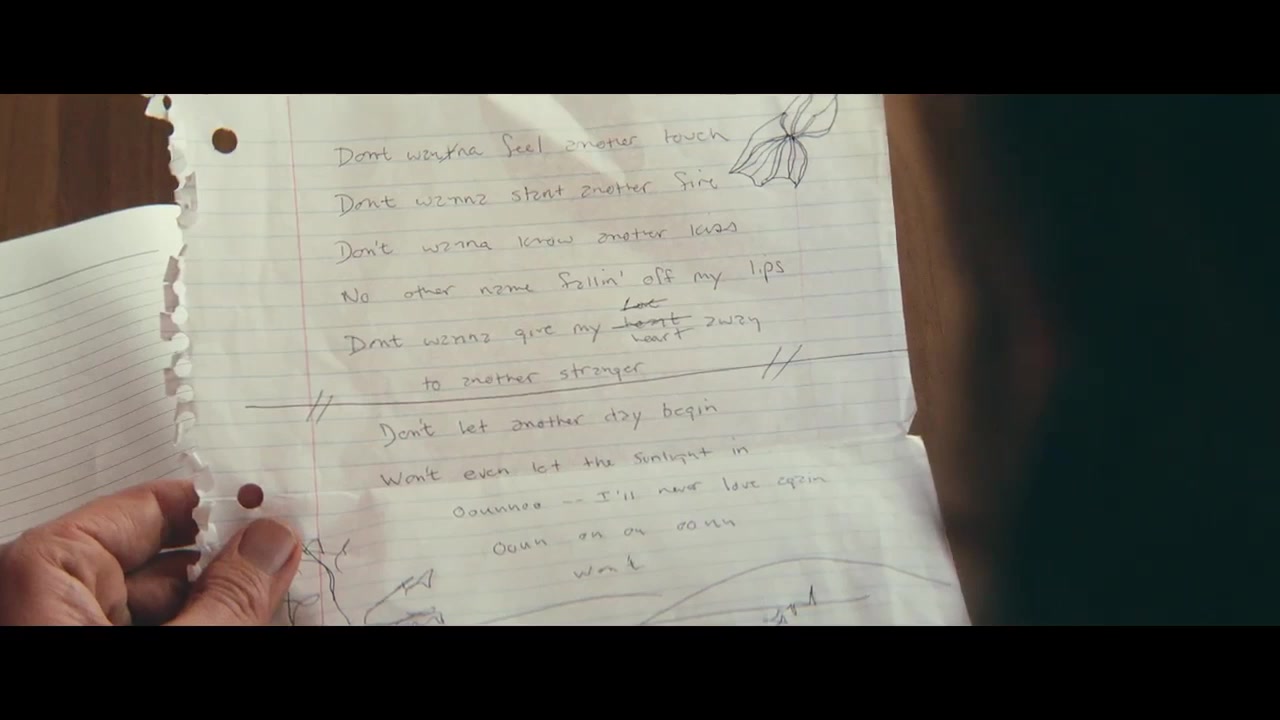 Dont wanna feel another touch
Dont wanna start another fire
Don't wanna know another kiss
No other name fallin' off my lips
Dont wanna give my heart away
to another stranger
Don't let another day begin
Won't even let the sunlight in
Oounnoo -- I'll never love again
Ooun on on oonn
Won't